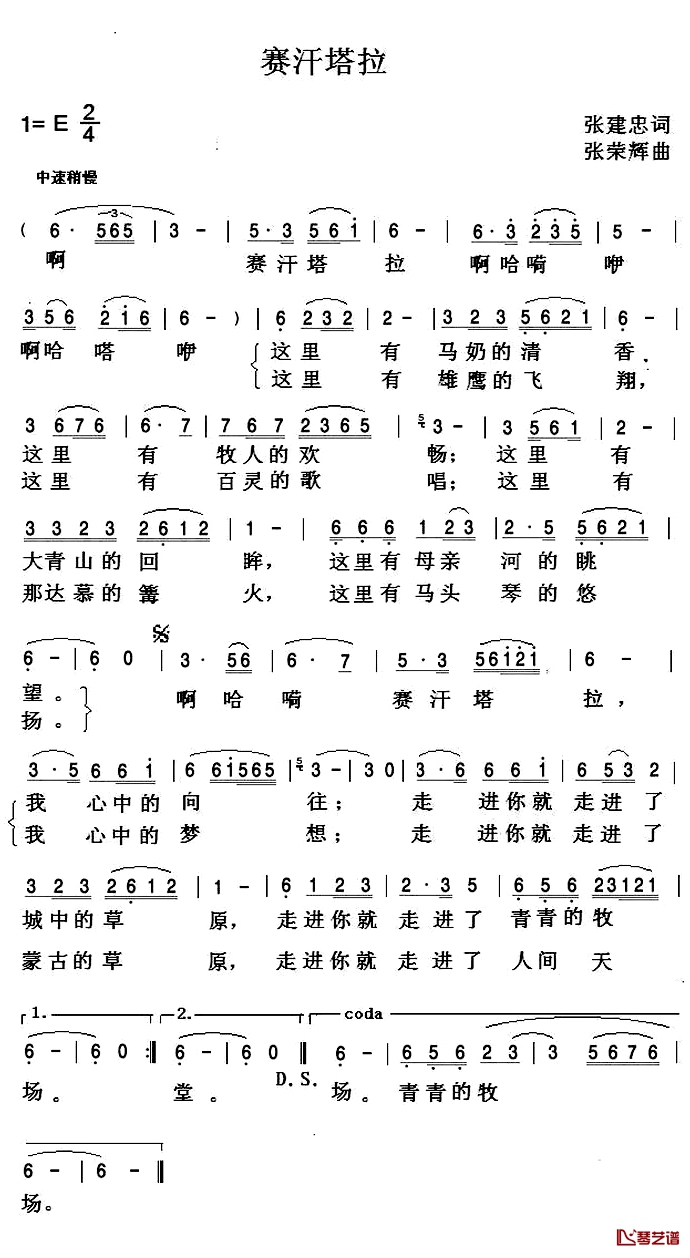 赛汗塔拉
1= E 2/4
张建忠词
张荣辉曲
中速稍慢
( 6· 3 565 | 3 - | 5·3 561 | 6 - | 6·3 235 | 5 - |
啊 赛汗塔 拉 啊哈嗬 咿
356 216 | 6 - ) | 6 232 | 2 - | 323 5621 | 6 - |
啊哈 嗒 咿 这里 有 马奶的清 香,
这里 有 雄鹰的飞 翔,
3 676 | 6·7 | 767 2365 | 5 3 - | 3 561 | 2 - |
这里 有 牧人的欢 畅；这里 有
这里 有 百灵的歌 唱；这里 有
3323 2612 | 1 - | 666 123 | 2·5 5621 |
大青山的回 眸，这里有母亲 河的眺
那达慕的篝 火，这里有马头 琴的悠
6 - | 6 0 | 3·56 | 6·7 | 5·3 56121 | 6 - |
望。 啊哈 嗬 赛汗塔 拉，
扬。
3·5 661 | 661565 | 5 3 - | 3 0 | 3·6 661 | 653 2 |
我 心中的向 往；走 进你就走进了
我 心中的梦 想；走 进你就走进了
323 2612 | 1 - | 6 123 | 2·3 5 | 656 23121 |
城中的草 原，走进你就 走进了 青青的牧
蒙古的草 原，走进你就 走进了 人间天
1. 2. coda
6 - | 6 0 :‖ 6 - | 6 0 ‖ 6 - | 656 23 | 3 5676 |
场。 堂。 D.S. 场。青青的牧
6 - | 6 - ‖
场。
琴艺谱